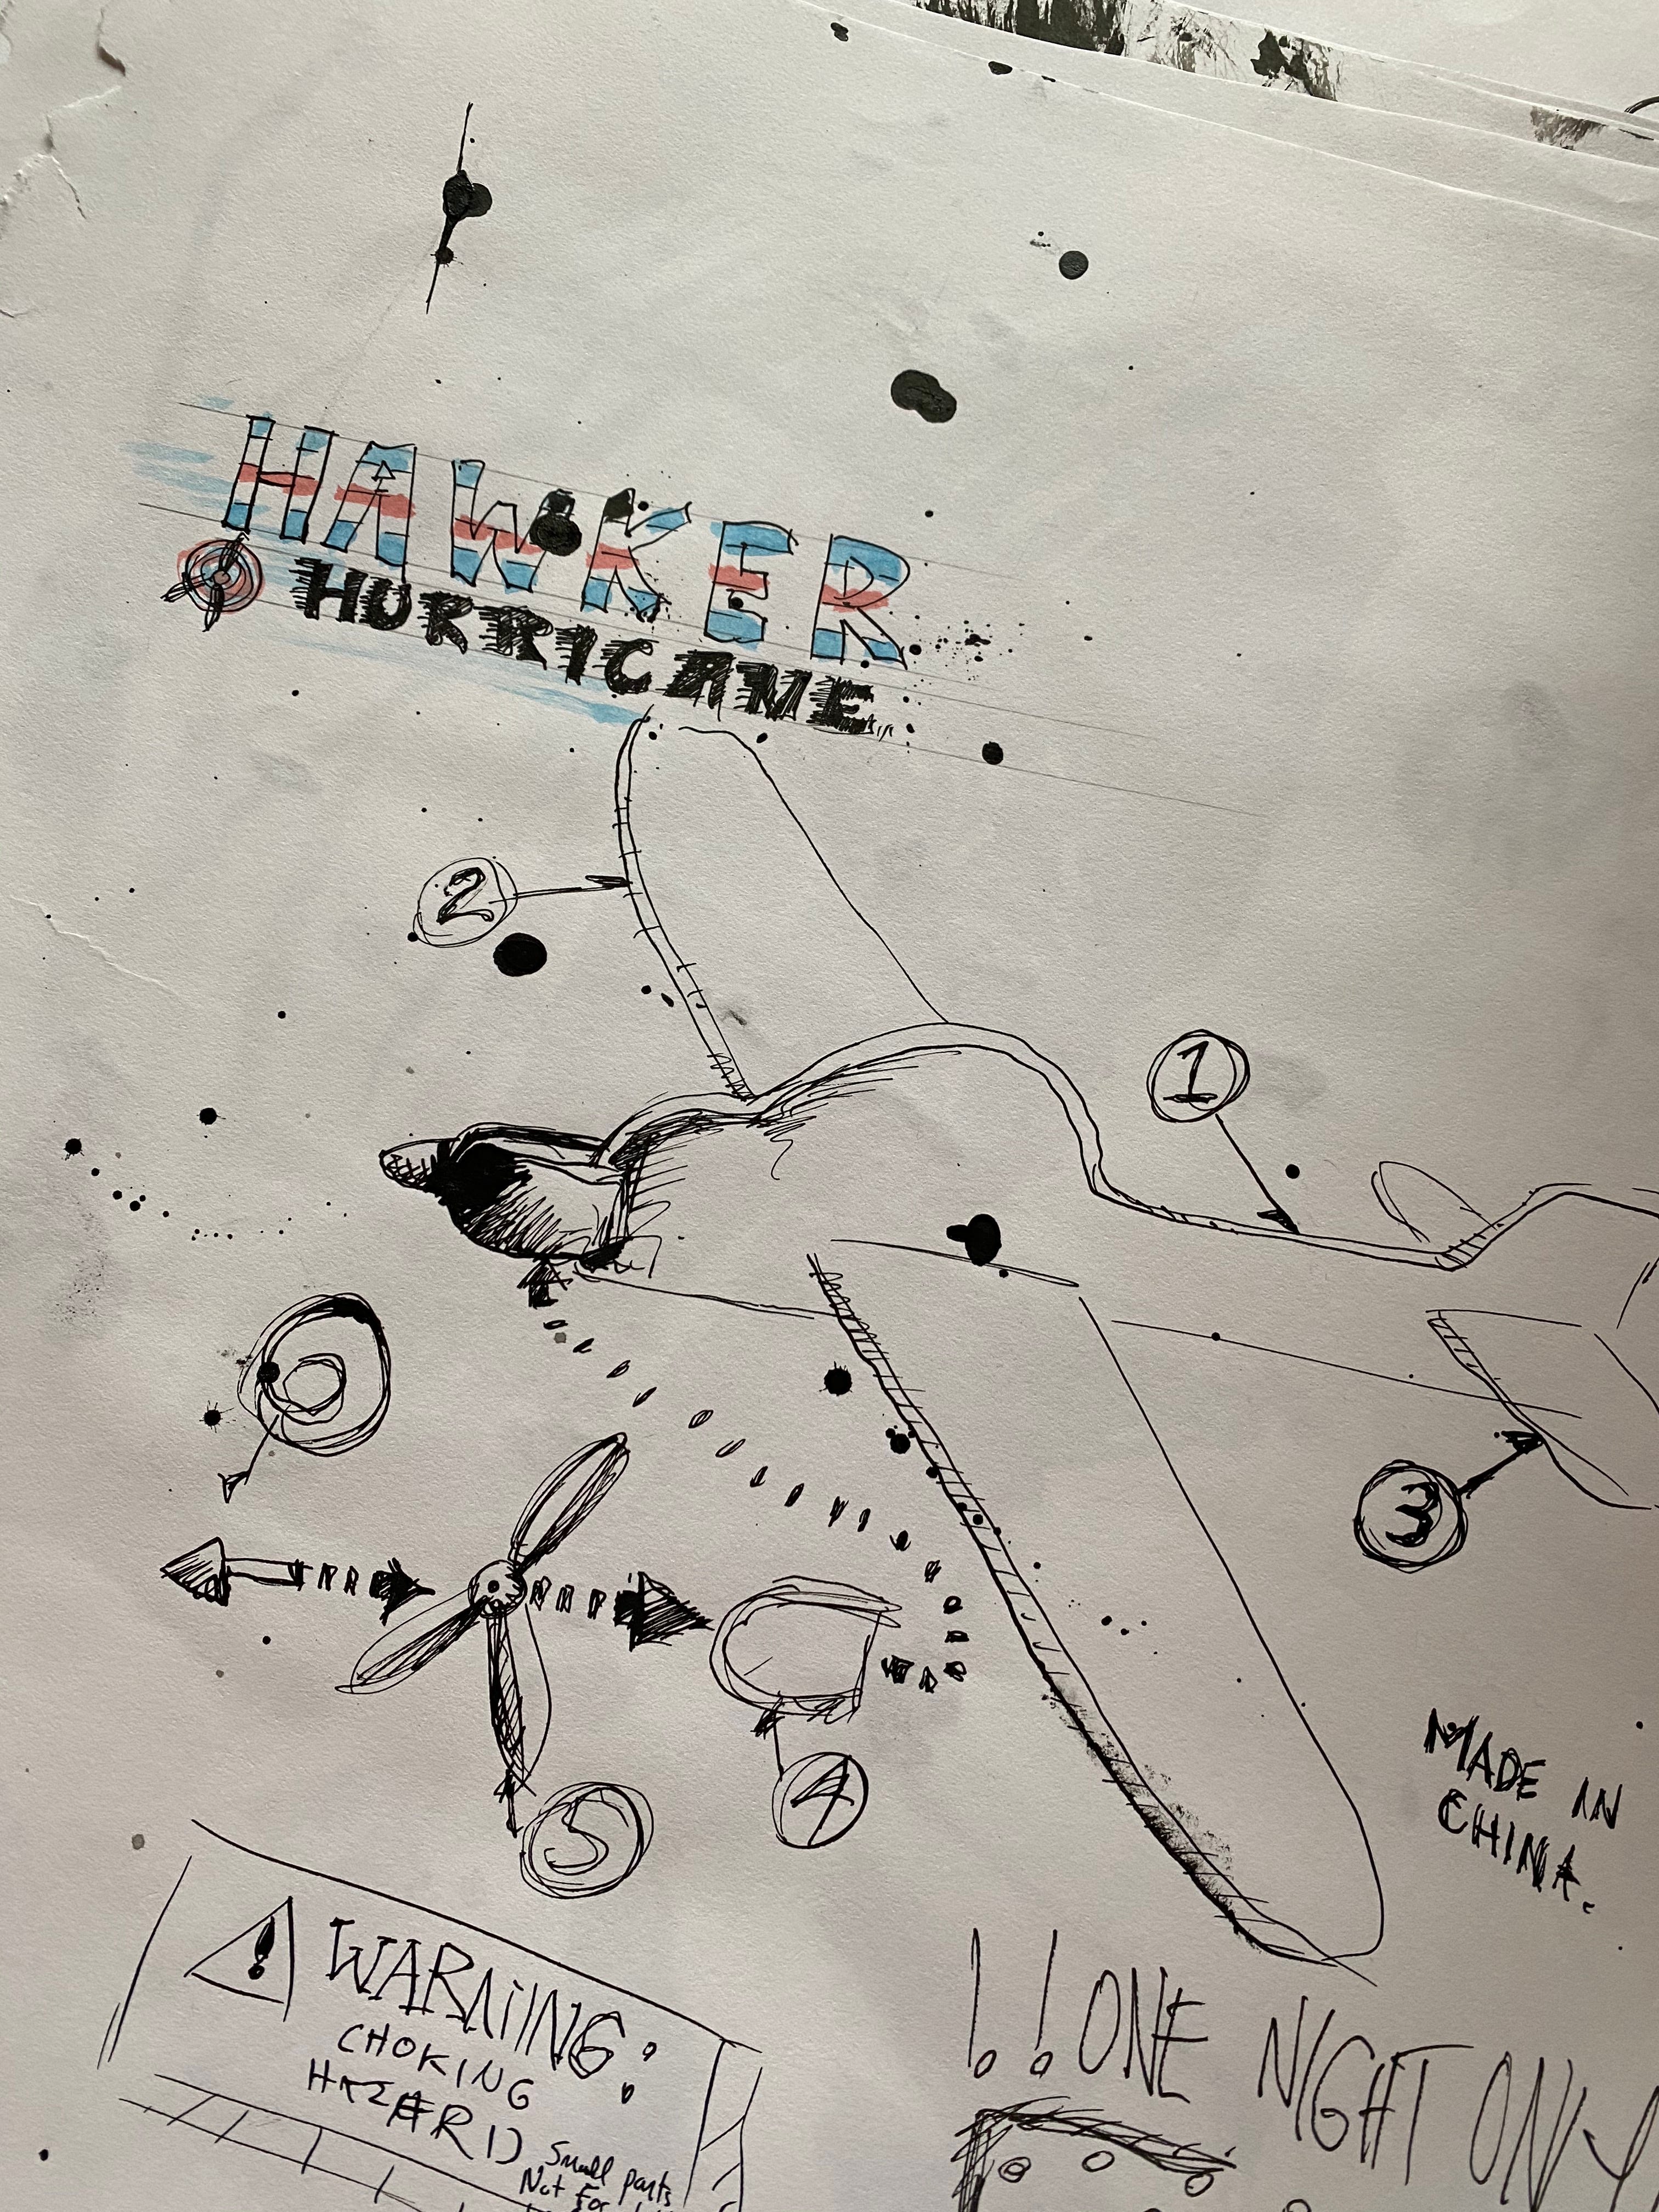 HAWKER
HURRICANE
2
1
3
4
5
MADE IN
CHINA.
! WARNiING:
CHOKING
HAZARD
Small parts
Not For
!! ONE NIGHT ONLY